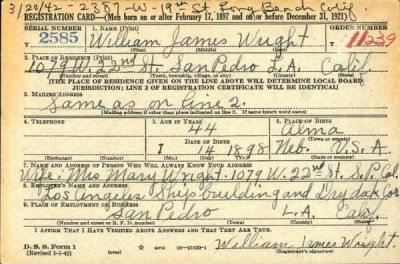 3/20/42 - 2387-W-19th St. Long Beach Calif
REGISTRATION CARD—(Men born on or after February 17, 1897 and on or before December 31, 1921)
SERIAL NUMBER 1. NAME (Print) ORDER NUMBER
2585 William James Wright 11239
(First) (Middle) (Last)
2. PLACE OF RESIDENCE (Print)
1079 W. 22nd St. San Pedro L.A. Calif.
(Number and street) (Town, township, village, or city) (County) (State)
[THE PLACE OF RESIDENCE GIVEN ON THE LINE ABOVE WILL DETERMINE LOCAL BOARD
JURISDICTION; LINE 2 OF REGISTRATION CERTIFICATE WILL BE IDENTICAL]
3. MAILING ADDRESS
Same as on line 2.
[Mailing address if other than place indicated on line 2. If same insert word same]
4. TELEPHONE 5. AGE IN YEARS 6. PLACE OF BIRTH
44 Alma
DATE OF BIRTH (Town or county)
14 1898 Neb. U.S.A.
(Exchange) (Number) (Mo.) (Day) (Yr.) (State or country)
7. NAME AND ADDRESS OF PERSON WHO WILL ALWAYS KNOW YOUR ADDRESS
Wife: Mrs Mary Wright - 1079 W. 22nd St. S.P. Cal.
8. EMPLOYER'S NAME AND ADDRESS
Los Angeles Shipbuilding and Dry dock Cor
9. PLACE OF EMPLOYMENT OR BUSINESS
San Pedro L.A. Calif.
(Number and street or R. F. D. number) (Town) (County) (State)
I AFFIRM THAT I HAVE VERIFIED ABOVE ANSWERS AND THAT THEY ARE TRUE.
D. S. S. Form 1
(Revised 1-1-42) (over) 16-21630-1 William James Wright.
(Registrant's signature)